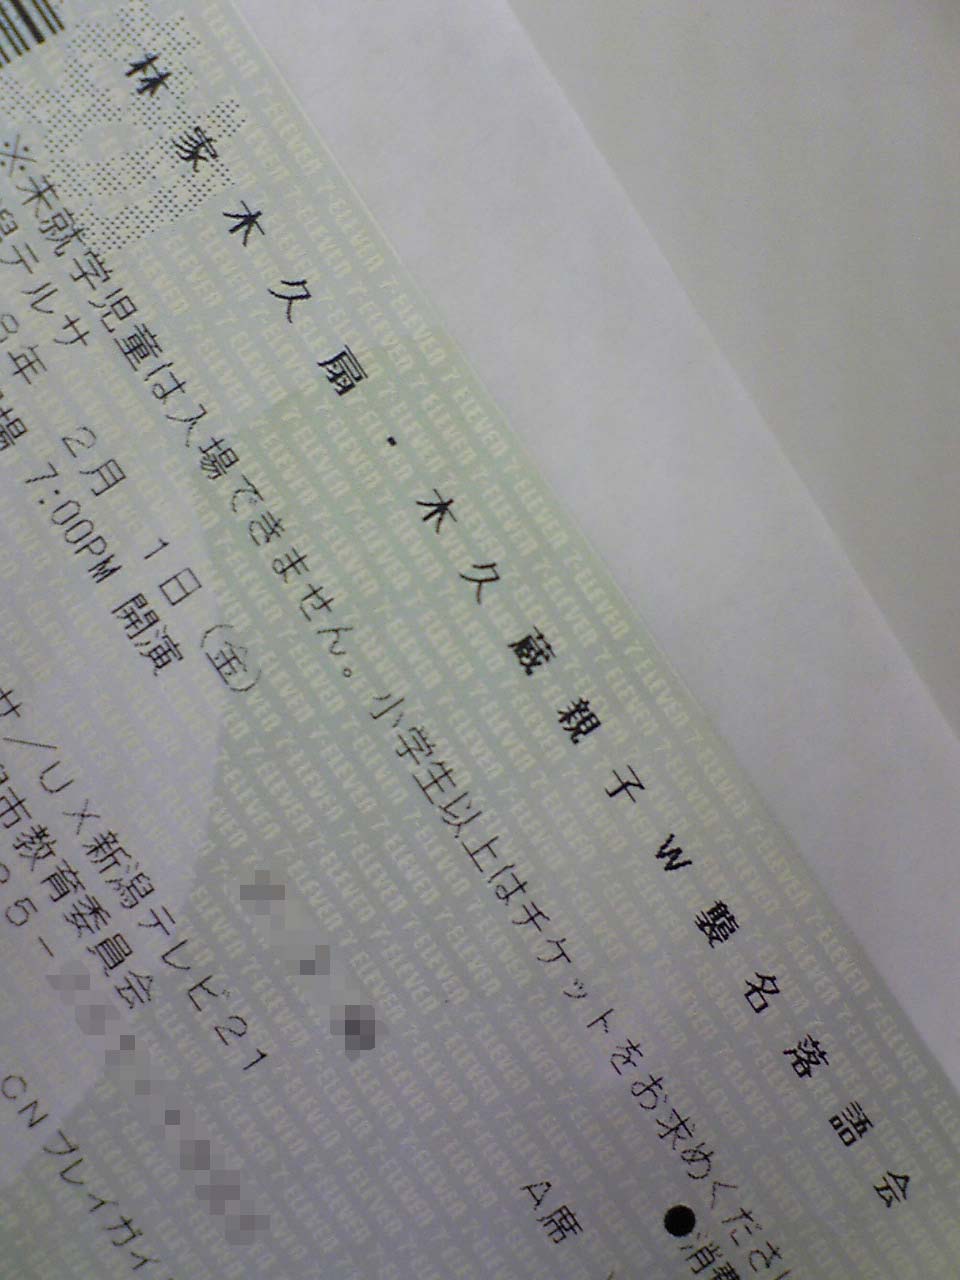 林家木久扇・木久蔵親子W襲名落語会
※未就学児童は入場できません。小学生以上はチケットをお求めくださ
テルサ
8年 2月 1日(金)
7:00PM 開演
A席
サ/UX新潟テレビ21
市教育委員会
CNプレイガイ
●消費
7-ELEVEN